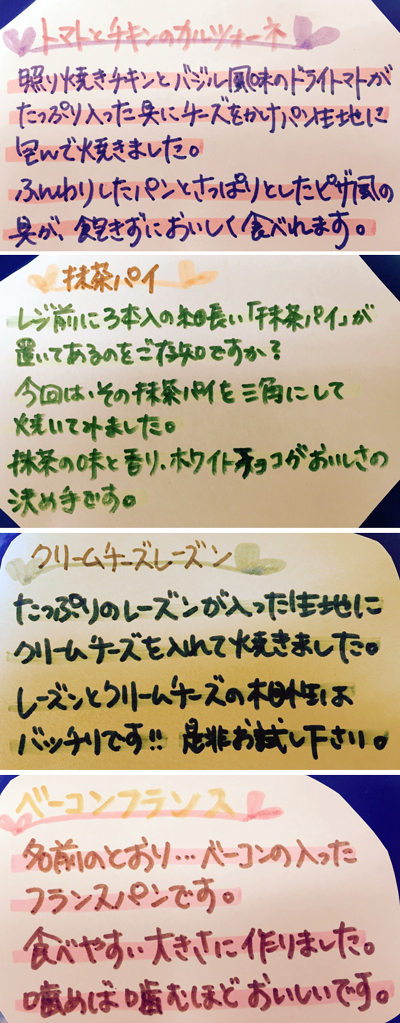 トマトとチキンのカルツォーネ
照り焼きチキンとバジル風味のドライトマトが
たっぷり入った具にチーズをかけパン生地に
包んで焼きました。
ふんわりしたパンとさっぱりとしたピザ風の
具が、飽きずにおいしく食べれます。
抹茶パイ
レジ前に3本入の細長い「抹茶パイ」が
置いてあるのをご存知ですか?
今回は、その抹茶パイを三角にして
焼いてみました。
抹茶の味と香り、ホワイトチョコがおいしさの
決め手です。
クリームチーズレーズン
たっぷりのレーズンが入った生地に
クリームチーズを入れて焼きました。
レーズンとクリームチーズの相性は
バッチリです!! 是非お試し下さい。
ベーコンフランス
名前のとおり…ベーコンの入った
フランスパンです。
食べやすい大きさに作りました。
噛めば噛むほどおいしいです。